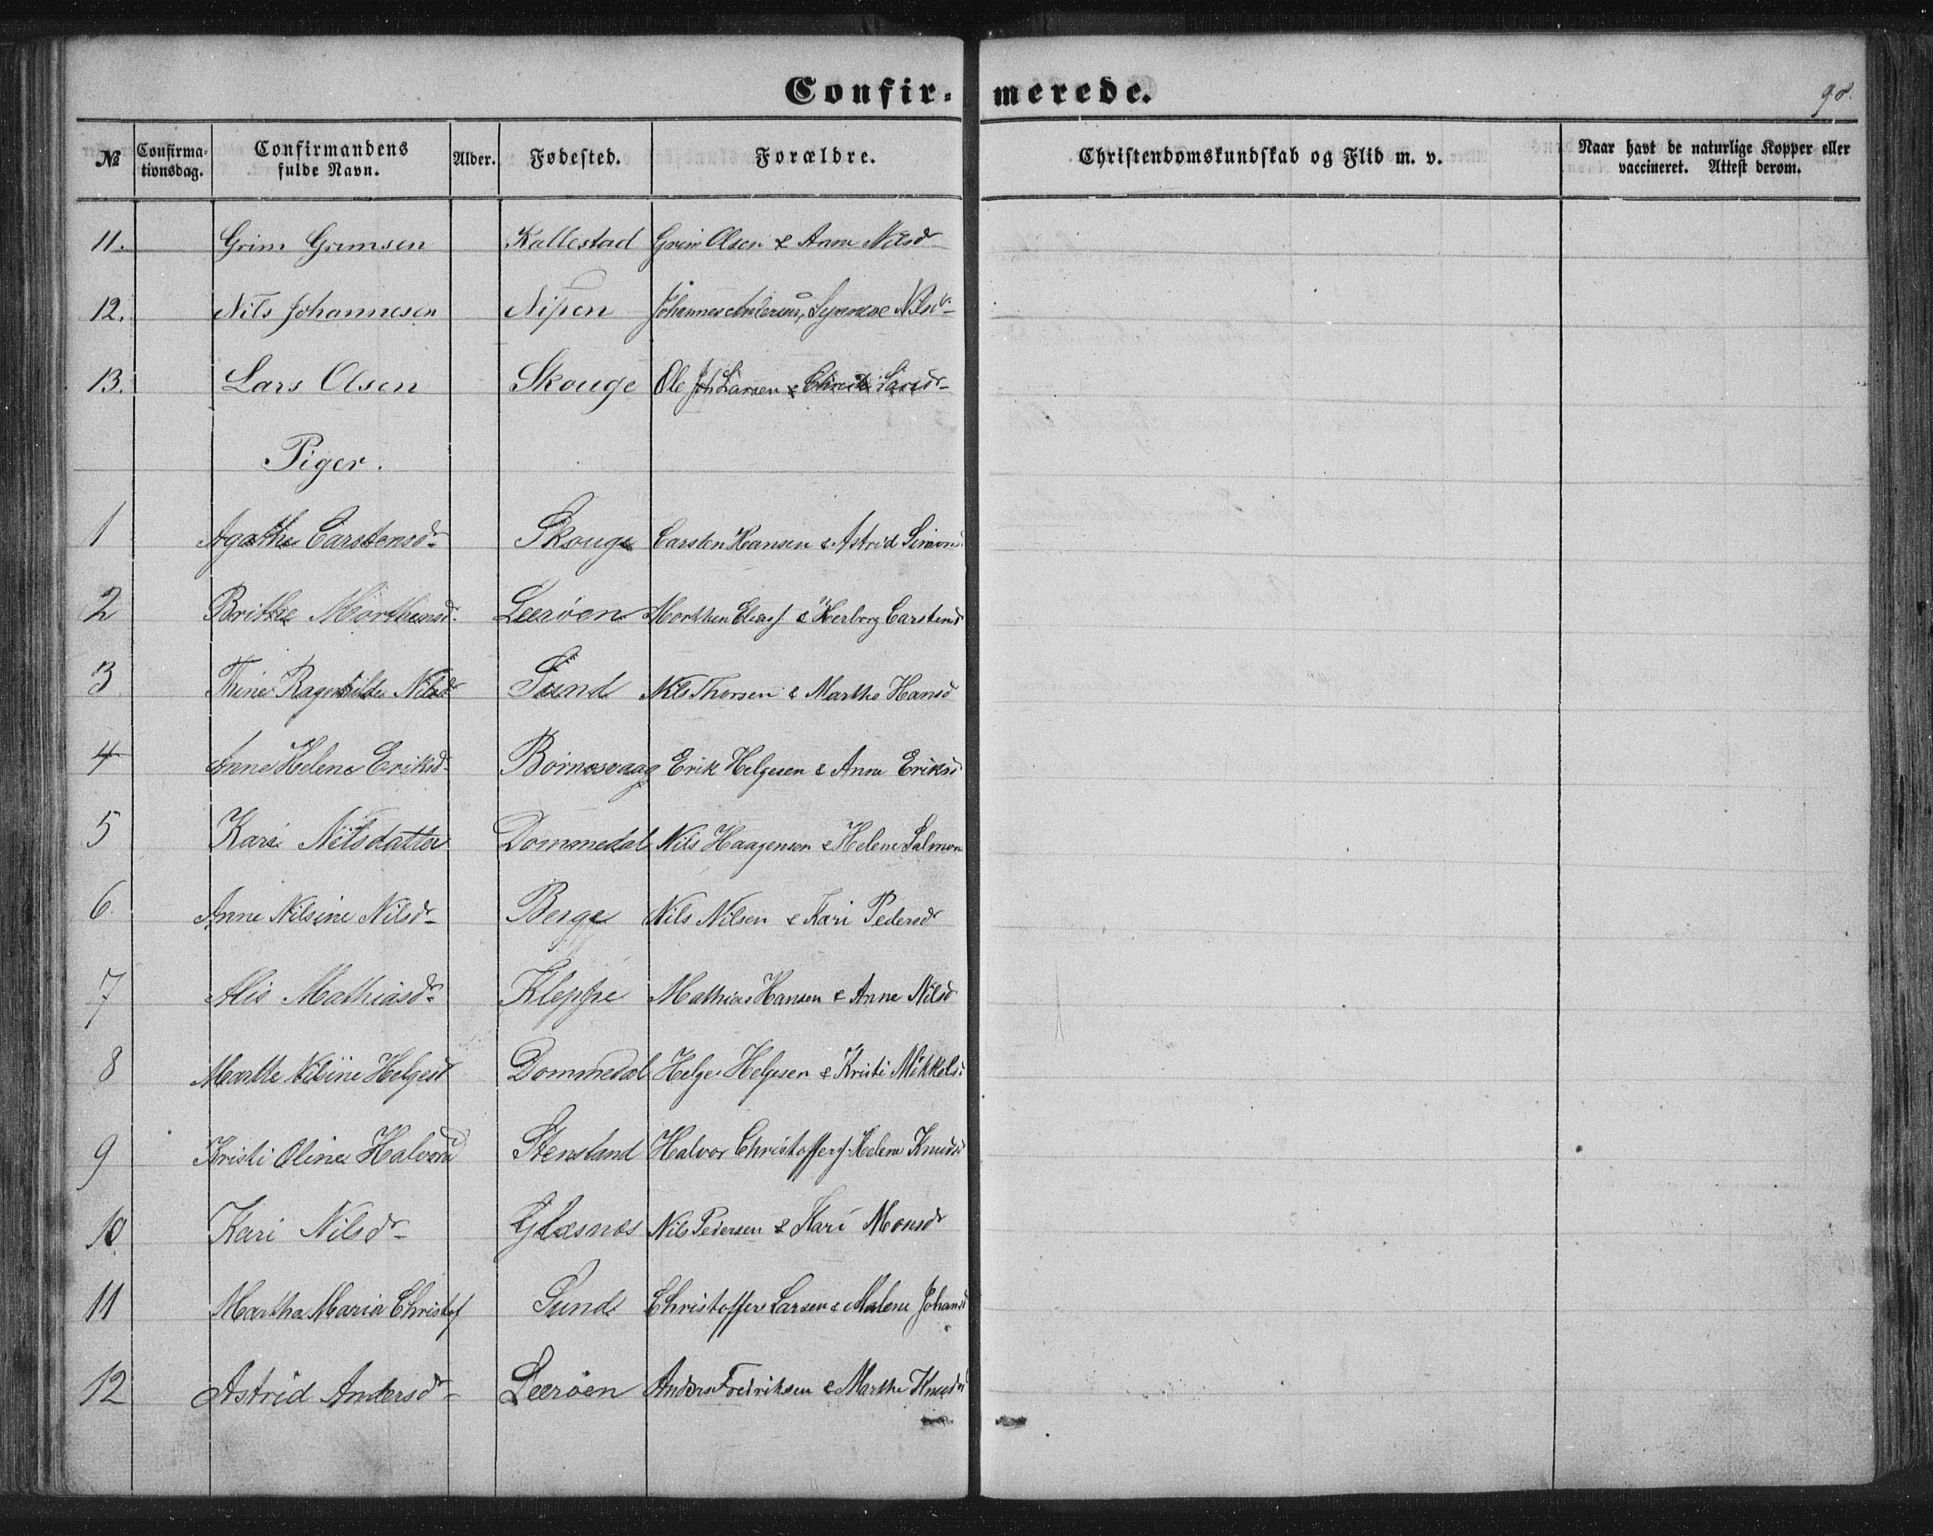 Confirmerede. 98.
№ Confirmationsdag. Confirmandens fulde Navn. Alder. Fødested. Forældre. Christendomskundskab og Flid m. v. Naar havt de naturlige Kopper eller vaccineret. Attest derom.
11. Grim Grimsen Kallestad Grim Olsen & Anna Nilsd
12. Nils Johannesen Nipen Johannes Andersen, Synneve Nilsd
13. Lars Olsen Skouge Ole Larsen & Larsd
Piger.
1 Agathe Carstensdr Skouge Carsten Hansen & Astrid Simons
2 Brithe Morthensd. Leerøen Morthen Elias f & Herborg Carstensd
3 Thine Ragenhilde Nilsd Sund Nils Thorsen & Marthe Hansd
4 Anne Helene Eriksd Børnesvaag Erik Helgesen & Anna Eriksd
5 Kari Nilsdatter Dommedal Nils Haagensen & Helene Salmon
6. Anne Nilsine Nilsdr Berge Nils Nilsen & Kari Pedersd
7 Alis Mathiasdr Kleppe Mathias Hansen & Anne Nilsd
8 Marthe Nilsine Helgesd Dommedal Helge Helgesen & Kristi Mikkelsd
9 Kristi Oline Halvors Stensland Halvor Christoffers f Helene Knudsd
10 Kari Nilsdr Glæsnes Nils Pedersen & Kari Monsd
11 Martha Maria Christof Sund Christoffer Larsen & Malene Johansd
12 Astrid Andersd Leerøen Anders Fredriksen & Marthe Knudsd